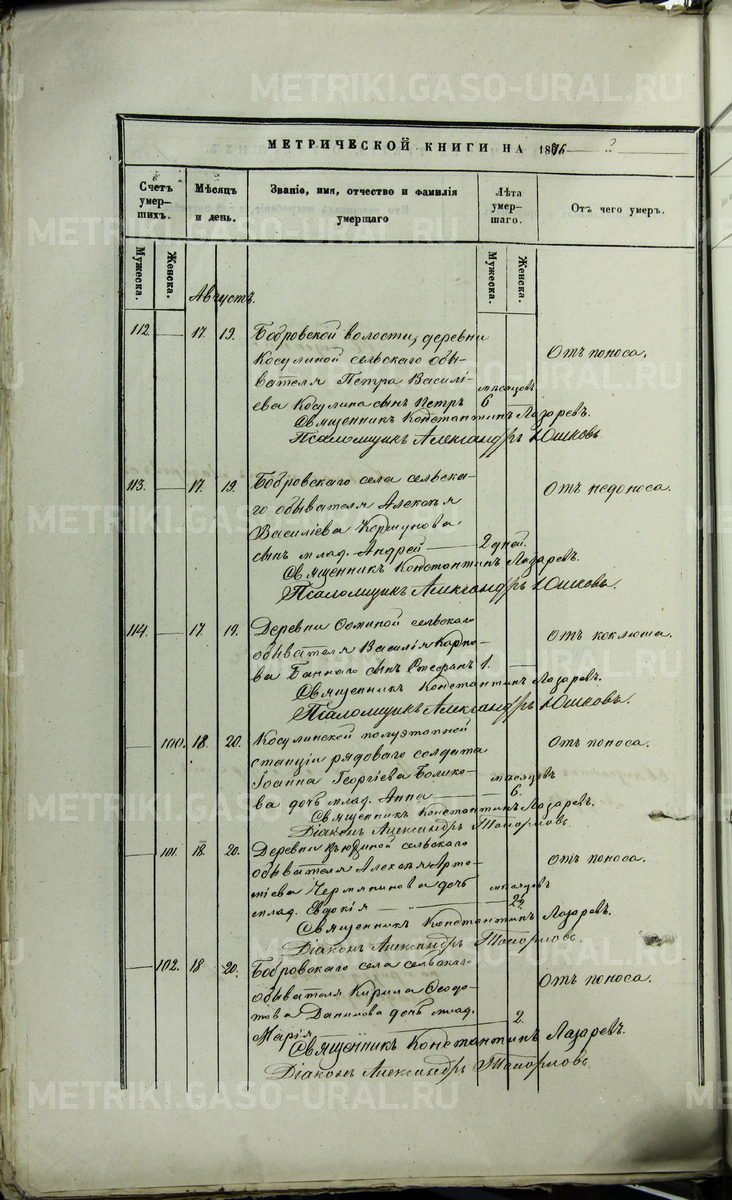 METRIKI.GASO-URAL.RU
МЕТРИЧЕСКОЙ КНИГИ НА 1876
Счетъ умер-шихъ. Мѣсяцъ и день. Званіе, имя, отчество и фамилія умершаго Лѣта умер-шаго. Отъ чего умеръ.
Мужеска. Женска. Мужеска. Женска.
Августъ.
112. — 17. 19. Бобровской волости, деревни
Косулиной сельскаго обы- Отъ поноса.
вателя Петра Василі- мѣсяцевъ
ева Косулина сынъ Петръ 6
Священникъ Константинъ Лазаревъ.
Псаломщикъ Александръ Юшковъ.
113. — 17. 19. Бобровскаго села сельска-
го обывателя Алексѣя Отъ недоноса.
Василіева Коршунова
сынъ млад. Андрей — 2 дней.
Священникъ Константинъ Лазаревъ.
Псаломщикъ Александръ Юшковъ.
114. — 17. 19. Деревни сельскаго Отъ коклюша.
обывателя Василія Карпо-
ва Банного сынъ Стефанъ 1. —
Священникъ Константинъ Лазаревъ.
Псаломщикъ Александръ Юшковъ.
— 100. 18. 20. Косулинской полуэтапной Отъ поноса.
станціи рядоваго солдата
Іоанна Георгіева мѣсяцовъ
ва дочь млад. Анна — 6.
Священникъ Константинъ Лазаревъ.
Діаконъ Александръ Топорковъ.
— 101. 18. 20. Деревни сельскаго
обывателя Алексѣя Арте- Отъ поноса.
міева дочь мѣсяцовъ
млад. Евдокія —
Священникъ Константинъ Лазаревъ.
Діаконъ Александръ Топорковъ.
— 102. 18. 20. Бобровскаго села сельскаго
обывателя Кирила Ѳеодо- Отъ поноса.
това Данилова дочь млад.
Марія — 2.
Священникъ Константинъ Лазаревъ.
Діаконъ Александръ Топорковъ.